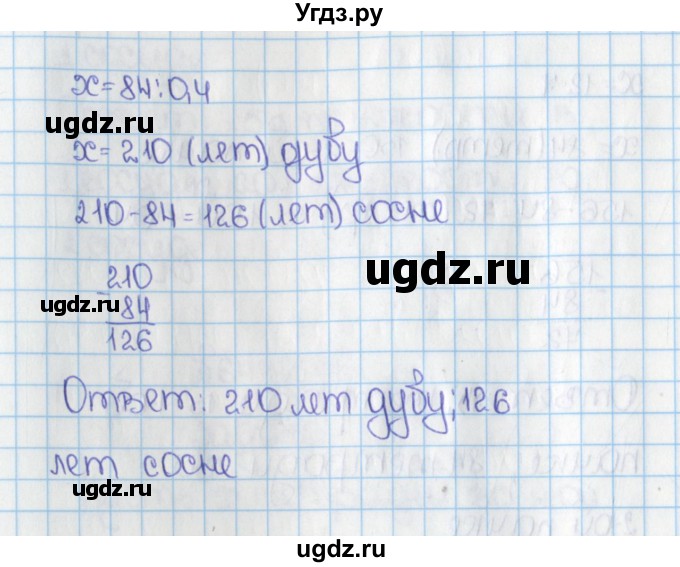 Угдз.ру
x=84:0,4
ugdz.ru
x=210 (лет) дубу
210-84=126 (лет) сосне
ugdz.ru
210
-
ugdz.ru
84
126
Ответ: 210 лет дубу; 126
лет сосне
ugdz.ru
ugdz.ru